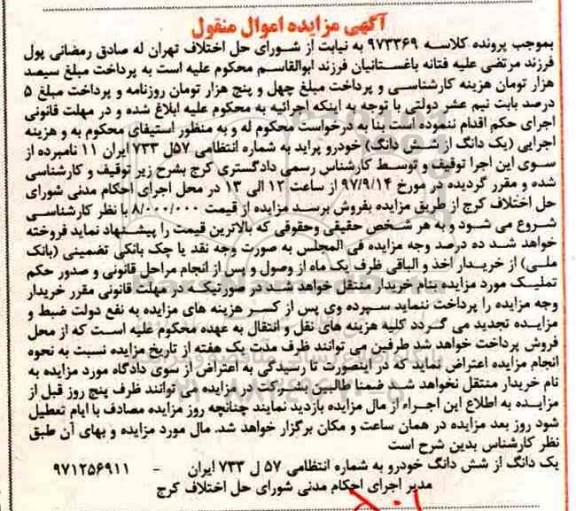 آگهی مزایده اموال منقول
بموجب پرونده کلاسه ۹۷۳۳۶۹ به نیابت از شورای حل اختلاف تهران له صادق رمضانی پول
فرزند مرتضی علیه فتانه باغستانیان فرزند ابوالقاسم محکوم علیه است به پرداخت مبلغ سیصد
هزار تومان هزینه کارشناسی و پرداخت مبلغ چهل و پنج هزار تومان روزنامه و پرداخت مبلغ ۵
درصد بابت نیم عشر دولتی با توجه به اینکه اجرائیه به محکوم علیه ابلاغ شده و در مهلت قانونی
اجرای حکم اقدام ننموده است بنا به درخواست محکوم له و به منظور استیفای محکوم به و هزینه
اجرایی (یک دانگ از شش دانگ) خودرو پراید به شماره انتظامی ۵۷ل ۷۳۳ ایران ۱۱ نامبرده از
سوی این اجرا توقیف و توسط کارشناس رسمی دادگستری کرج بشرح زیر توقیف و کارشناسی
شده و مقرر گردیده در مورخ ۹۷/۹/۱۴ از ساعت ۱۲ الی ۱۳ در محل اجرای احکام مدنی شورای
حل اختلاف کرج از طریق مزایده بفروش برسد مزایده از قیمت ۸/۰۰۰/۰۰۰ با نظر کارشناسی
شروع می شود و به هر شخص حقیقی وحقوقی که بالاترین قیمت را پیشنهاد نماید فروخته
خواهد شد ده درصد وجه مزایده فی المجلس به صورت وجه نقد یا چک بانکی تضمینی (بانک
ملی) از خریدار اخذ و الباقی ظرف یک ماه از وصول و پس از انجام مراحل قانونی و صدور حکم
تملیک مورد مزایده بنام خریدار منتقل خواهد شد در صورتیکه در مهلت قانونی مقرر خریدار
وجه مزایده را پرداخت ننماید سپرده وی پس از کسر هزینه های مزایده به نفع دولت ضبط و
مزایده تجدید می گردد کلیه هزینه های نقل و انتقال به عهده محکوم علیه است که از محل
فروش پرداخت خواهد شد طرفین می توانند ظرف مدت یک هفته از تاریخ مزایده نسبت به نحوه
انجام مزایده اعتراض نماید که در اینصورت تا رسیدگی به اعتراض از سوی دادگاه مورد مزایده به
نام خریدار منتقل نخواهد شد ضمنا طالبین شرکت در مزایده می توانند ظرف پنج روز قبل از
مزایده به اطلاع این اجراء از مال مزایده بازدید نمایند چنانچه روز مزایده مصادف با ایام تعطیل
شود روز بعد مزایده در همان ساعت و مکان برگزار خواهد شد. مال مورد مزایده و بهای آن طبق
نظر کارشناس بدین شرح است
یک دانگ از شش دانگ خودرو به شماره انتظامی ۵۷ ل ۷۳۳ ایران - ۹۷۱۲۵۶۹۱۱
مدیر اجرای احکام مدنی شورای حل اختلاف کرج